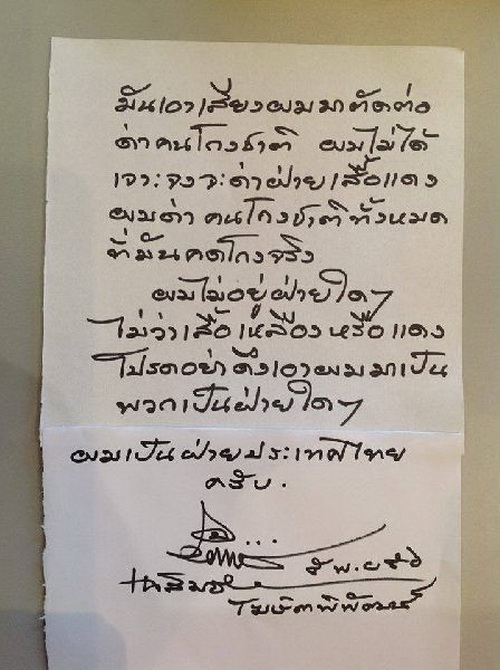 มันเอาเสียงผมมาตัดต่อ
ด่าคนโกงชาติ ผมไม่ได้
เจาะจงจะด่าฝ่ายเสื้อแดง
ผมด่าคนโกงชาติทั้งหมด
ที่มันคดโกงจริง
ผมไม่อยู่ฝ่ายใดๆ
ไม่ว่าเสื้อเหลืองหรือแดง
โปรดอย่าดึงเอาผมมาเป็น
พวกเป็นฝ่ายใดๆ
ผมเป็นฝ่ายประเทศไทย
ครับ.
พ.ย
โฆษิตพิพัฒน์